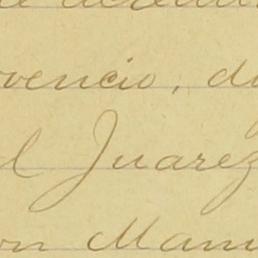 vencio, d
l Juarez
on Man